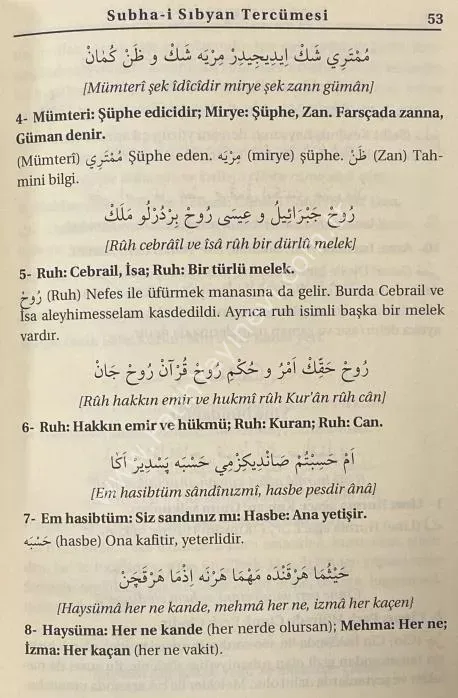 Subha-i Sıbyan Tercümesi 53
مُمْتَرِي شَكْ اِيدِيجِيدِرْ مِرْيَه شَكْ و ظَنْ كُمَانْ
[Mümterî şek îdîcîdir mirye şek zann gümân]
4- Mümteri: Şüphe edicidir; Mirye: Şüphe, Zan. Farsçada zanna,
Güman denir.
(Mümterî) مُمْتَرِي Şüphe eden. مِرْيَه (mirye) şüphe. ظَنْ (Zan) Tah-
mini bilgi.
رُوحْ جَبْرَائِيلُ و عِيسَى رُوحْ بِرْدُرْلُو مَلَكْ
[Rûh cebrâîl ve îsâ rûh bir dürlû melek]
5- Ruh: Cebrail, İsa; Ruh: Bir türlü melek.
رُوحْ (Ruh) Nefes ile üfürmek manasın da gelir. Burda Cebrail ve
İsa aleyhimesselam kasdedildi. Ayrıca ruh isimli başka bir melek
vardır.
رُوحْ حَقِّكْ اَمْرُ و حُكْمِ رُوحْ قُرْآنْ رُوحْ جَانْ
[Rûh hakkın emir ve hukmî rûh Kur'ân rûh cân]
6- Ruh: Hakkın emir ve hükmü; Ruh: Kuran; Ruh: Can.
اَمْ حَسِبْتُمْ صَانْدِيكِزْمِي حَسْبَه پَسْدِيرْ اَكَا
[Em hasibtüm sândînızmî, hasbe pesdir ânâ]
7- Em hasibtüm: Siz sandınız mı: Hasbe: Ana yetişir.
حَسْبَه (hasbe) Ona kafitir, yeterlidir.
حَيْثُمَا هَرْقَنْدَه مَهْمَا هَرْنَه اِذْمَا هَرْقَچَنْ
[Haysümâ her ne kande, mehmâ her ne, izmâ her kaçen}
8- Haysüma: Her ne kande (her nerde olursan); Mehma: Her ne;
İzma: Her kaçan (her ne vakit).